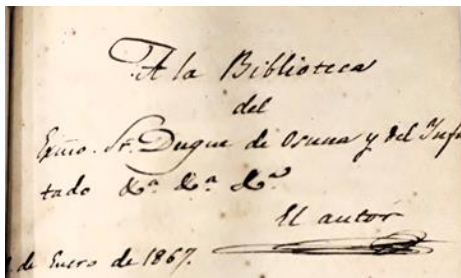 A la Biblioteca
del
Exmo. Sr. Duque de Osuna y del Infa
tado &a. &a. &a.
El autor
de Enero de 1867.